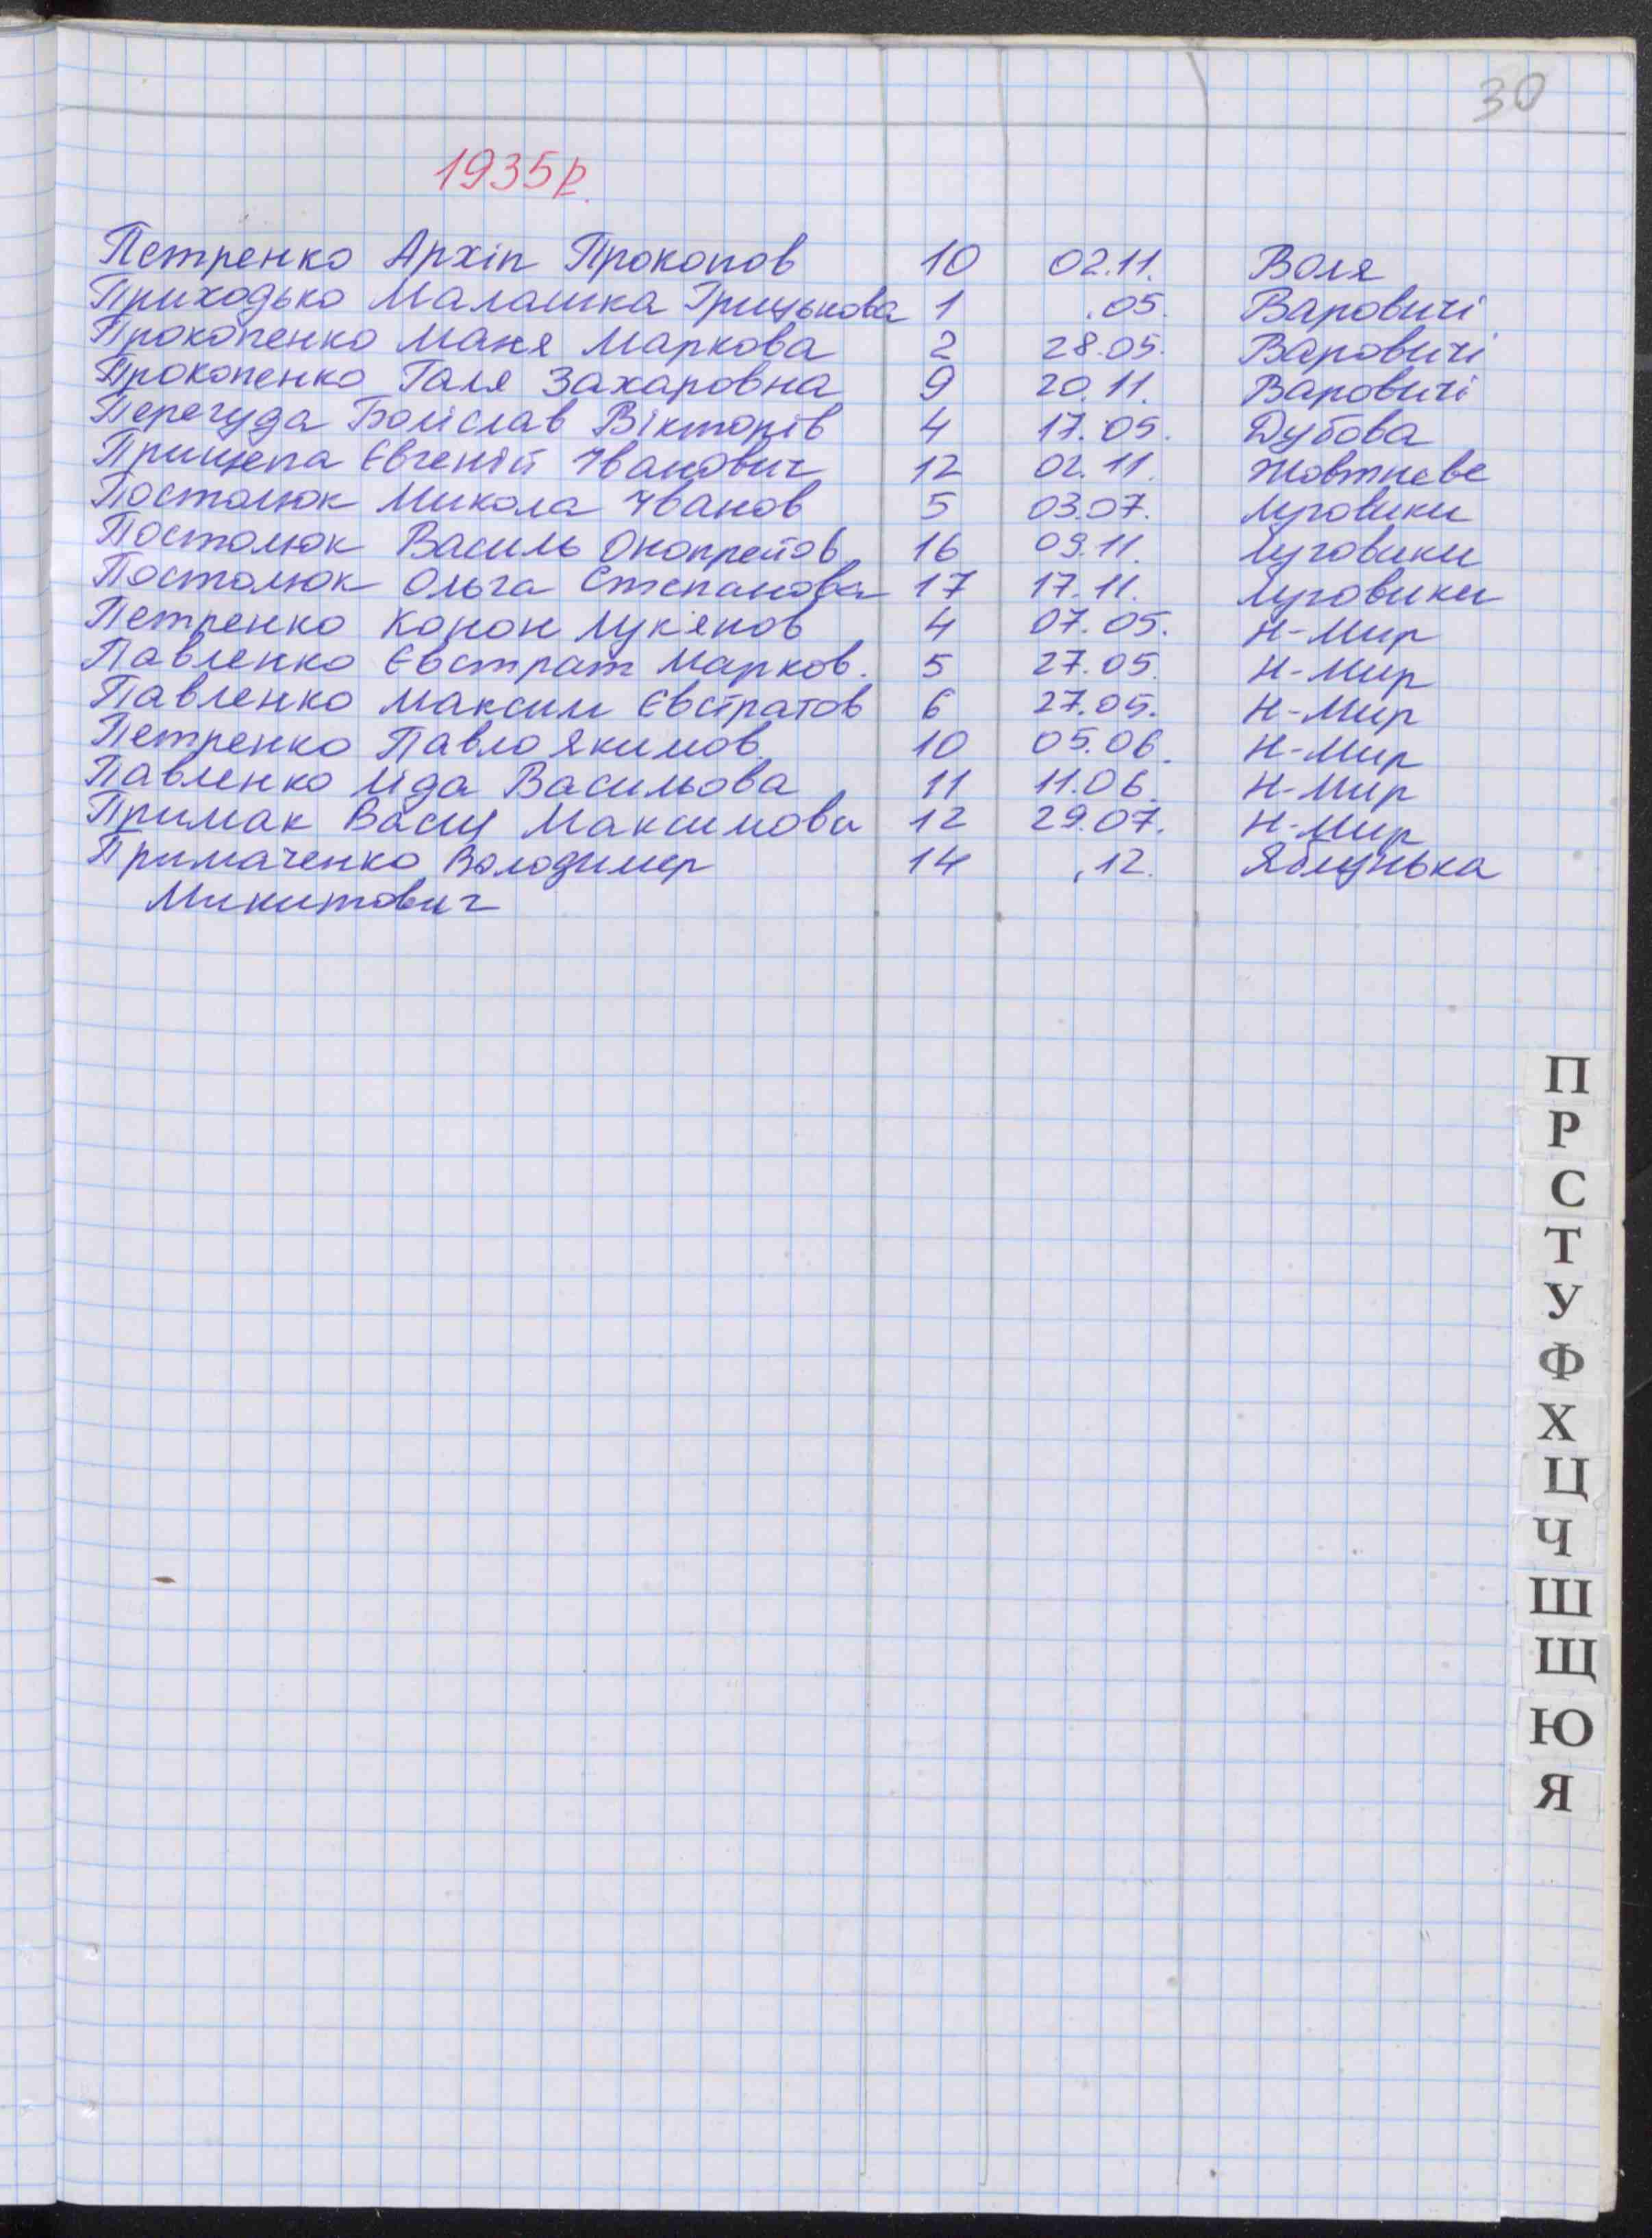 30
1935р.
Петренко Архіп Прокопов 10 02.11. Воля
Приходько Малашка Грицькова 1 .05. Варовичі
Прокопенко Маня Маркова 2 28.05. Варовичі
Прокопенко Галя Захаровна 9 20.11. Варовичі
Перегуда Болислав Вікторів 4 17.05. Дубова
Прищепа Євгеній Іванович 12 02.11. Жовтнєве
Постолюк Микола Іванов 5 03.07. Луговики
Постолюк Василь Онопреїов 16 09.11. Луговики
Постолюк Ольга Степанова 17 17.11. Луговики
Петренко Конон Лук'янов 4 07.05. Н-Мир
Павленко Євстрат Марков. 5 27.05. Н-Мир
Павленко Максим Євстратов 6 27.05. Н-Мир
Петренко Павло Якимов 10 05.06. Н-Мир
Павленко Ліда Васильова 11 11.06. Н-Мир
Примак Максимова 12 29.07. Н-Мир
Примаченко Володимер 14 .12. Яблунька
Микитович
П
Р
С
Т
У
Ф
Х
Ц
Ч
Ш
Щ
Ю
Я